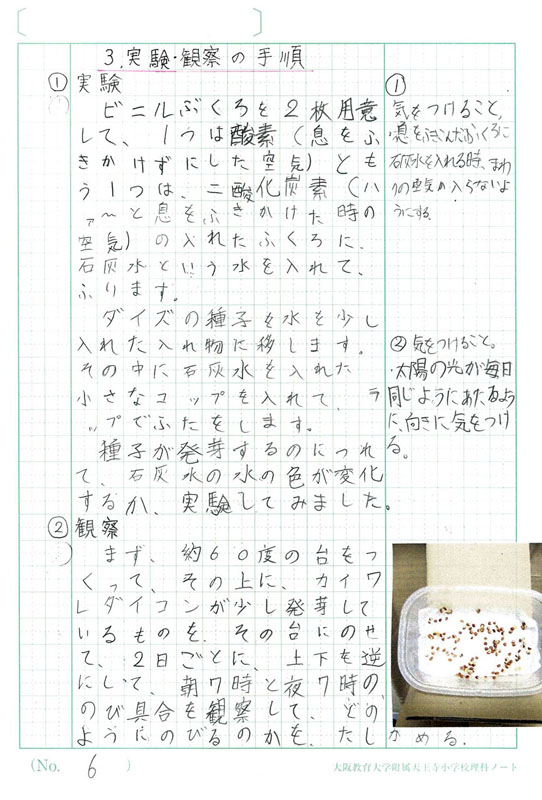 3.実験・観察の手順
①実験
ビニルぶくろを2枚用意
して、1つは酸素(息をふ
きかけずにした空気)とも
う1つは、二酸化炭素(ハ
ァ〜と息をふきかけた時の
空気)の入れたふくろに、
石灰水という水を入れて、
ふります。
ダイズの種子を水を少し
入れた入れ物に移します。
その中に石灰水を入れた
小さなコップを入れて、ラ
ップでふたをします。
種子が発芽するのにつれ
て、石灰水の水の色が変化
するか、実験してみました。
②観察
まず、約60度の台をつ
くって、その上に、カイワ
レダイコンが少し発芽して
いるものを、その台にのせ
て、2日ごとに、上下を逆
にして、朝7時と夜7時の、
のび具合を観察して、どの
ようにのびるのかを、たしかめる。
①
気をつけること,
・息をふきこんだふくろに
石灰水を入れる時、まわ
りの空気の入らないよ
うにする。
②気をつけること。
・太陽の光が毎日
同じようにあたるよう
に、向きに気をつけ
る。
(No. 6 )
大阪教育大学附属天王寺小学校理科ノート